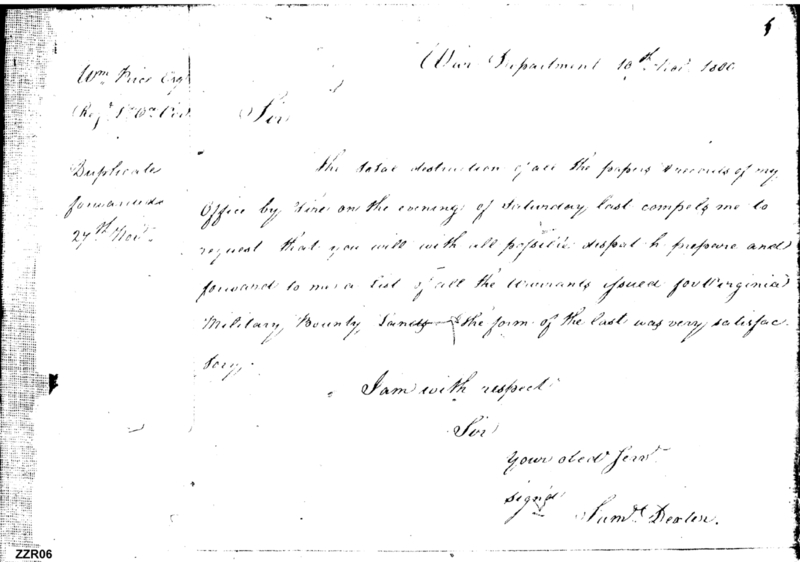 War Department 10th Nov. 1800
Wm Price Esqr
Sir
Duplicate
forwarded
27th Nov.
The total distruction of all the papers & records of my
Office by Fire on the evening of Saturday last compels me to
request that you will with all possible dispatch prepare and
forward to me a List of all the Warrants issued for Virginia
Military Bounty Lands the form of the last was very satisfac
tory.
I am with respect
Sir
Your obed Servt
signd
Saml. Dexter.
ZZR06